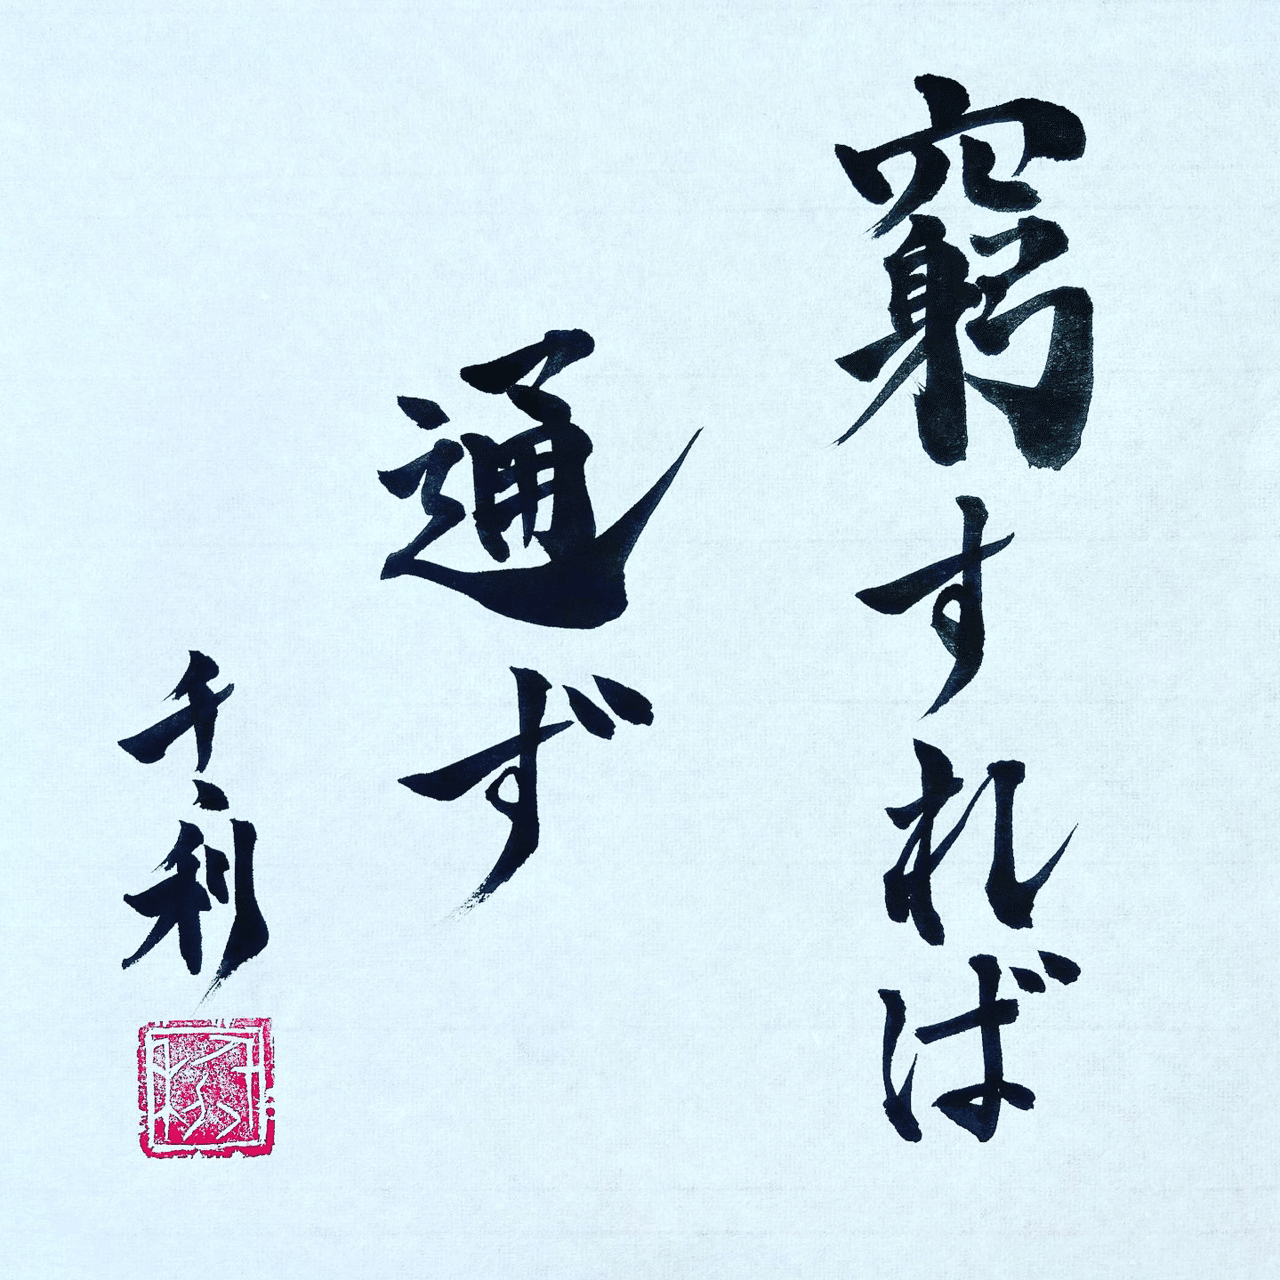 窮すれば
通ず
千利